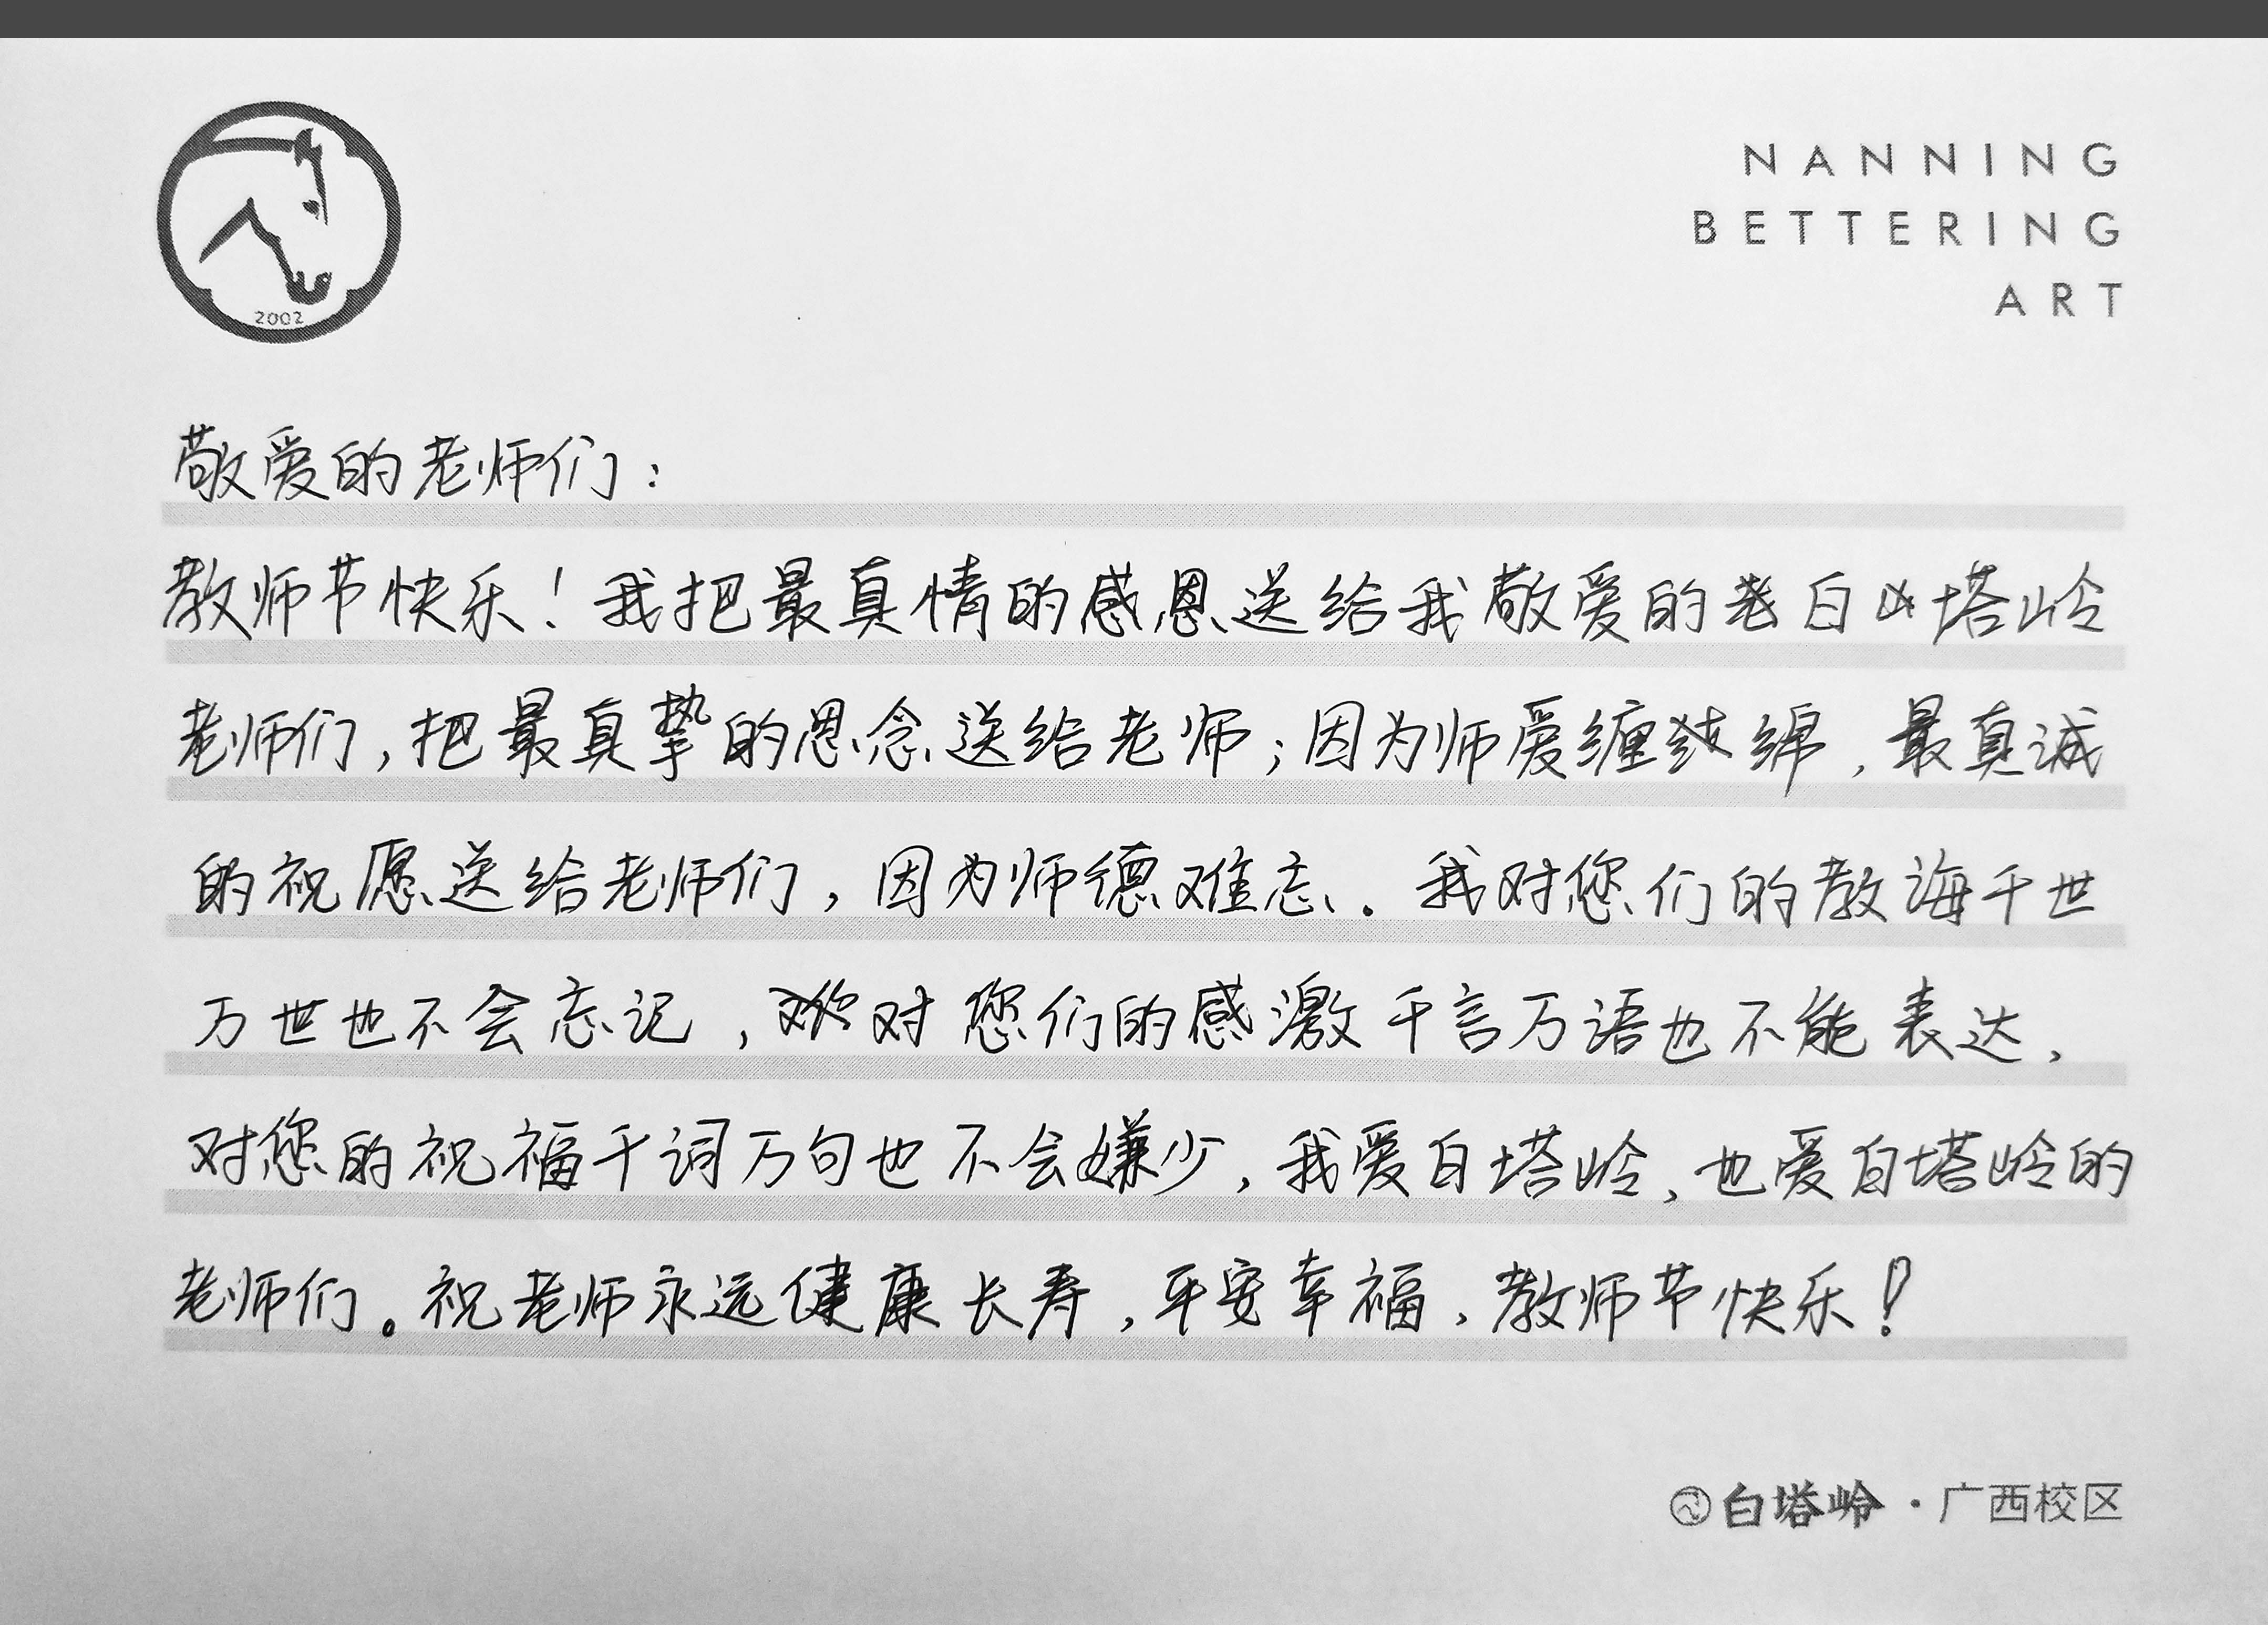 2002
NANNING
BETTERING
ART
敬爱的老师们：
教师节快乐！我把最真情的感恩送给我敬爱的白塔岭
老师们，把最真挚的思念送给老师；因为师爱缠绵，最真诚
的祝愿送给老师们，因为师德难忘。我对您们的教诲千世
万世也不会忘记，对您们的感激千言万语也不能表达，
对您的祝福千词万句也不会嫌少，我爱白塔岭，也爱白塔岭的
老师们。祝老师永远健康长寿，平安幸福，教师节快乐！
白塔岭·广西校区